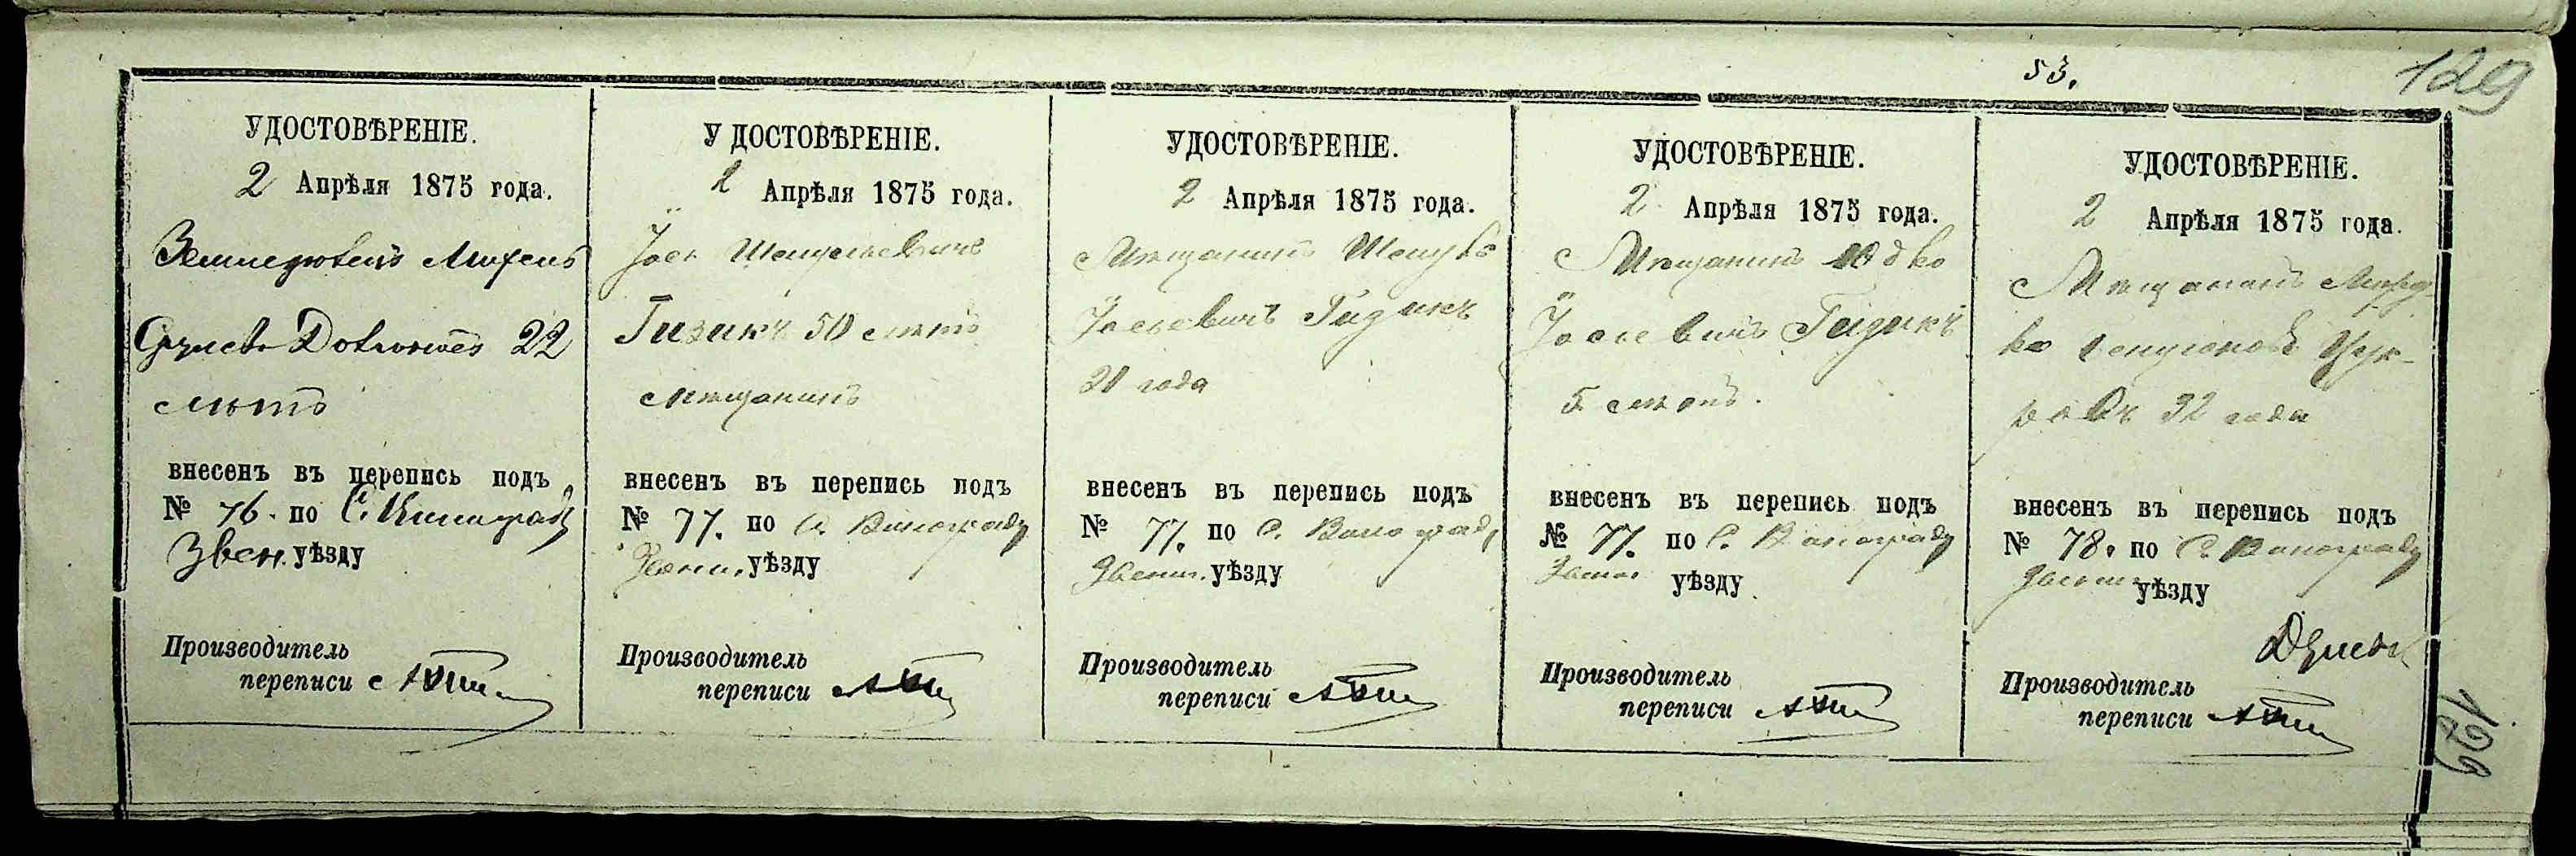 53.
129
УДОСТОВѢРЕНІЕ.
2 Апрѣля 1875 года.
22
лѣтъ
внесенъ въ перепись подъ
№ 76. по С. Винограду
Звен. уѣзду
Производитель
переписи
УДОСТОВѢРЕНІЕ.
2 Апрѣля 1875 года.
Іось
Гизикъ 50 лѣтъ
мѣщанинъ
внесенъ въ перепись подъ
№ 77. по С. Винограду
Звени. уѣзду
Производитель
переписи
УДОСТОВѢРЕНІЕ.
2 Апрѣля 1875 года.
Мѣщанинъ
Іосьевичъ Гизикъ
21 года
внесенъ въ перепись подъ
№ 77. по С. Винограду
Звениг. уѣзду
Производитель
переписи
УДОСТОВѢРЕНІЕ.
2 Апрѣля 1875 года.
Мѣщанинъ Юдко
Іосьевичъ Гизикъ
5 лѣтъ.
внесенъ въ перепись подъ
№ 77. по С. Винограду
уѣзду
Производитель
переписи
УДОСТОВѢРЕНІЕ.
2 Апрѣля 1875 года.
Мѣщанинъ Морд-
ко
32 года
внесенъ въ перепись подъ
№ 78. по С. Винограду
уѣзду
Производитель
переписи
129